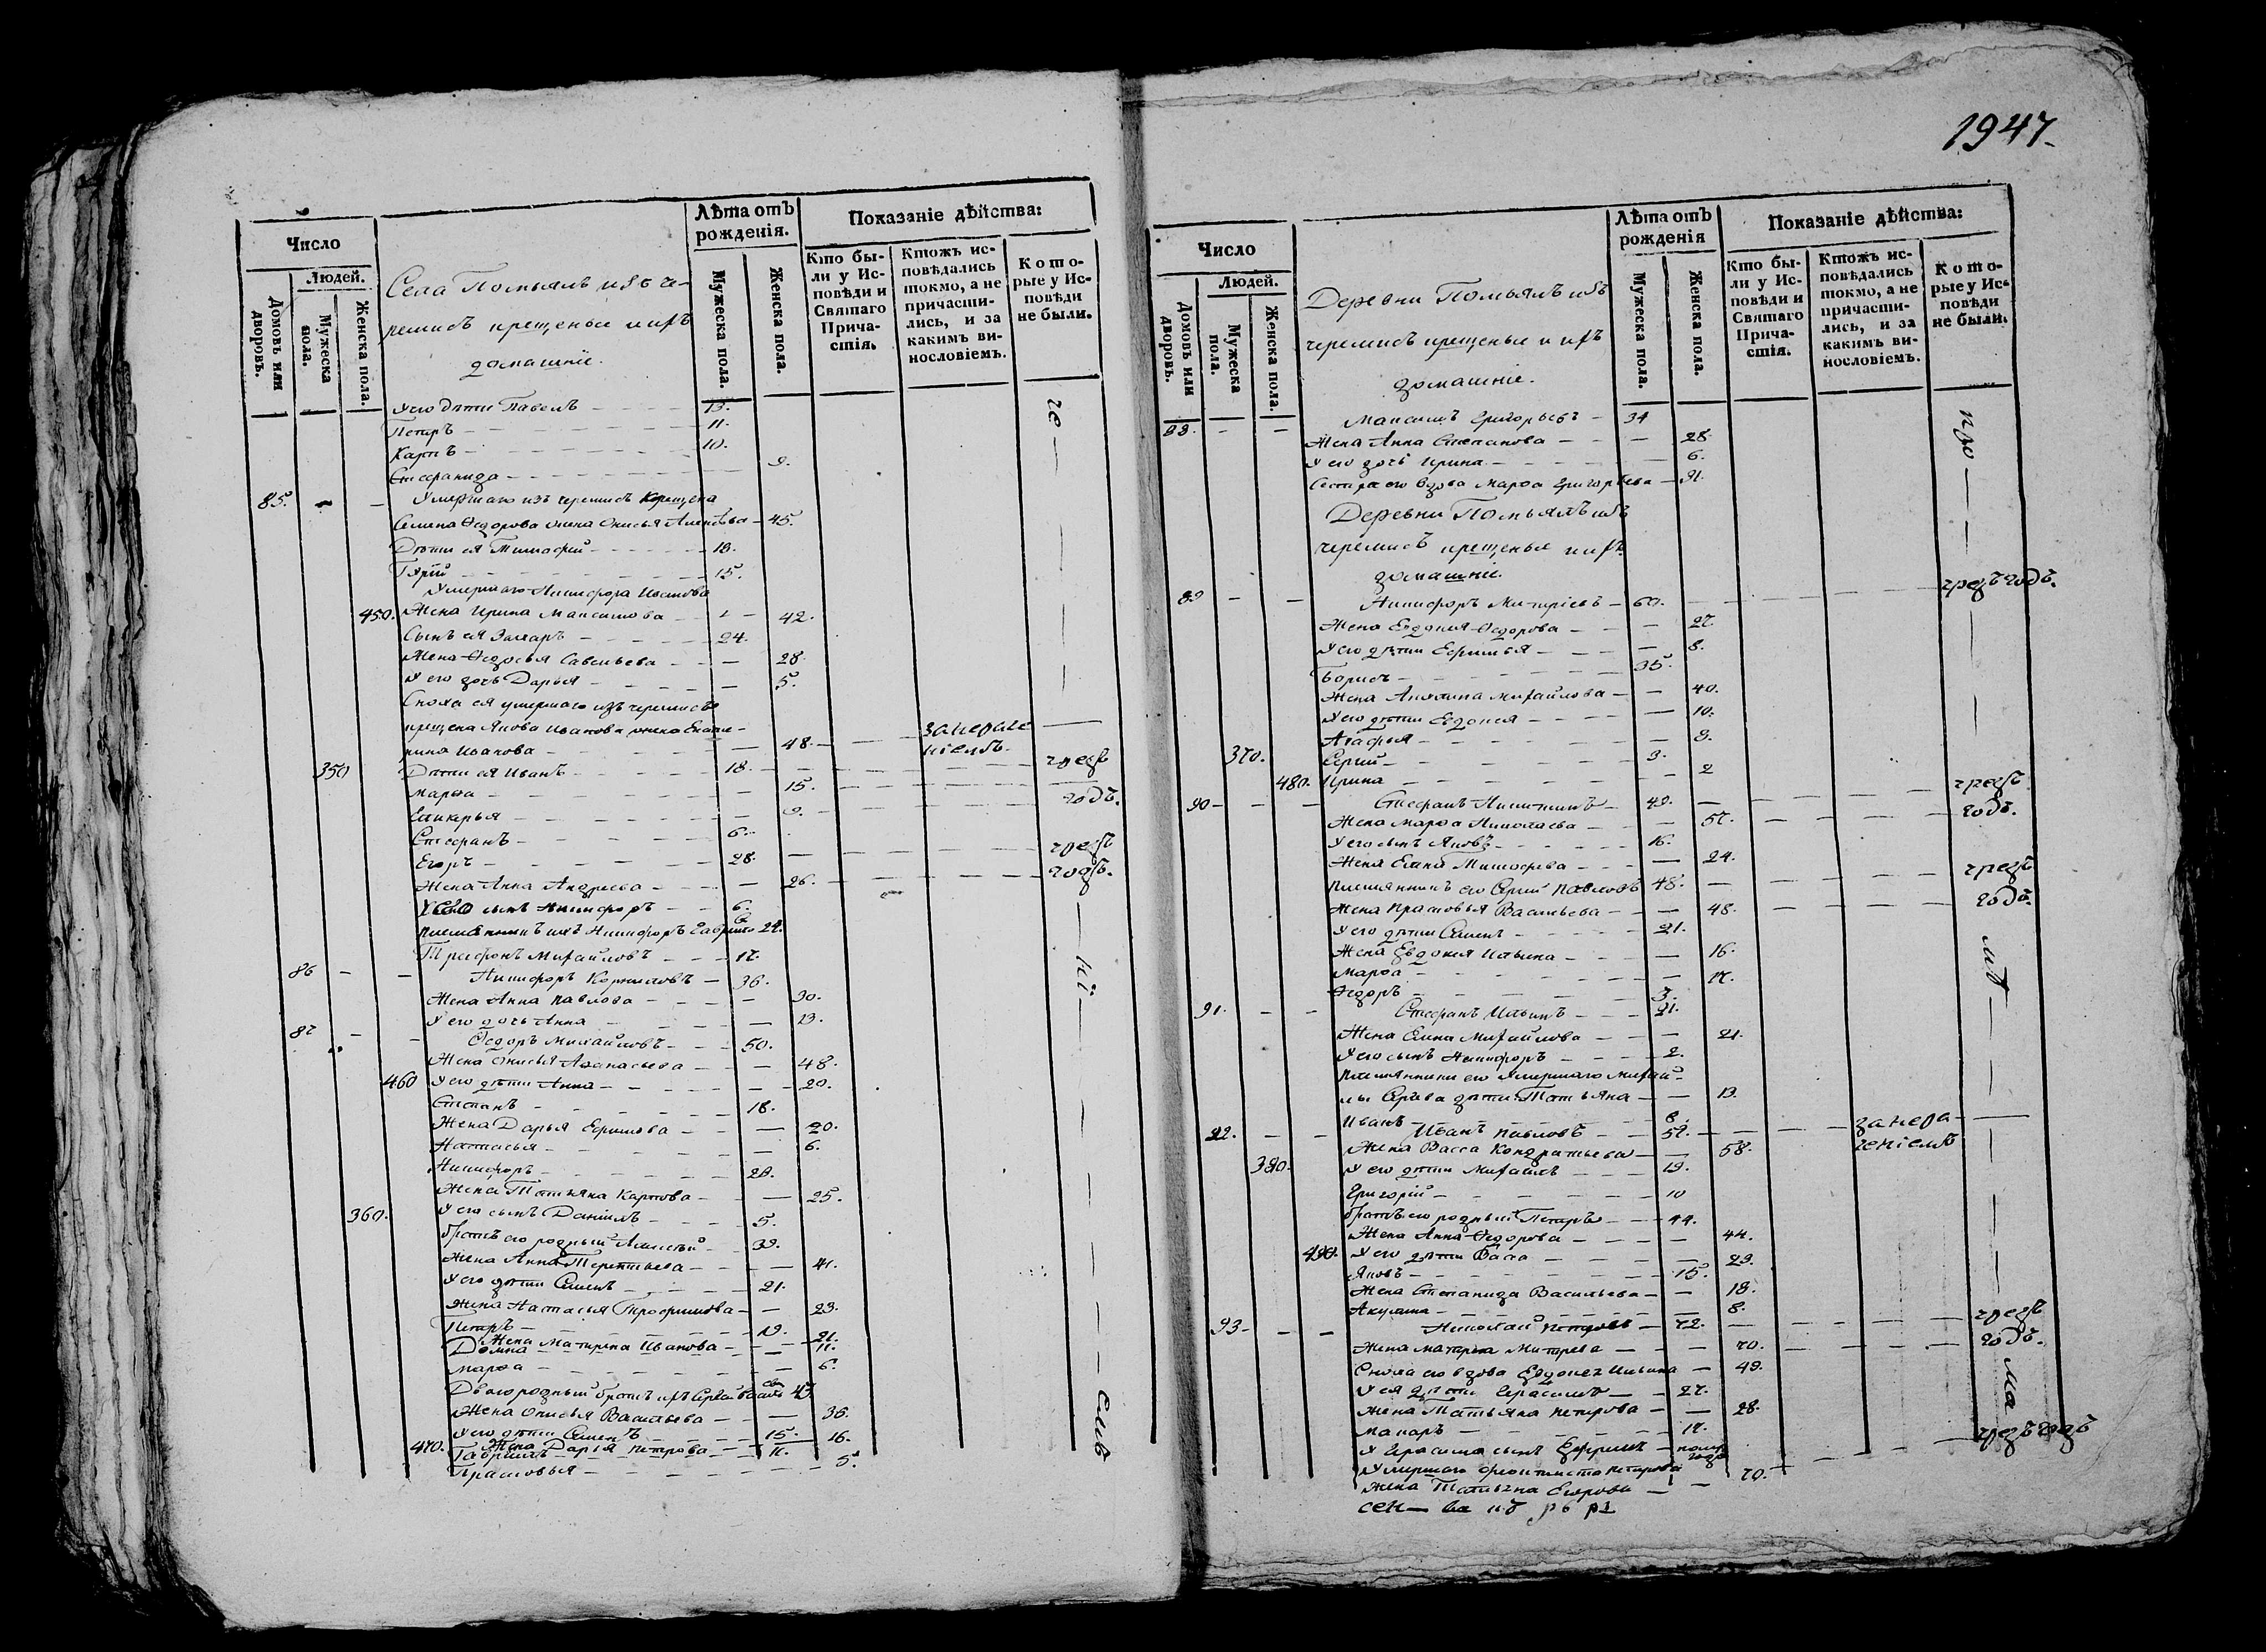 1947.
Число
Людей.
Домовъ или дворовъ.
Мужеска пола.
Женска пола.
Села Помьялъ изъ че-
ремисъ крещеные и ихъ
домашніе.
Лѣта отъ рожденія.
Мужеска пола.
Женска пола.
Показаніе дѣйства:
Кто бы-
ли у Ис-
повѣди и
Святаго
Прича-
стія.
Ктожъ ис-
повѣдались
токмо, а не
причасти-
лись, и за
какимъ ви-
нословіемъ.
Кото-
рые у Ис-
повѣди
не были.
У его дѣти Павелъ 13.
Петръ 11.
Карпъ 10.
Стефанида 9.
85. Умершаго изъ черемисъ Крещена
Семена Ѳедорова жена Онисья Алексѣева 45.
Дѣти ея Тимофей 19.
Гурій 15.
Умершаго Никифора Иванова
450. Жена Ирина Максимова 42.
Сынъ ея Захаръ 24.
Жена Ѳедосья Савельева 28.
У его дочь Дарья 5.
Сноха ея умершаго изъ черемисъ
крещена Якова Иванова жена Екате-
рина Иванова 48. за нераче ніемъ
350 Дѣти ея Иванъ 18. чрезъ
Марѳа 15. годъ.
Гликерья 9.
Стефанъ 6.
Егоръ 28. чрезъ
Жена Анна Андреева 26. годъ.
У его сынъ Никифоръ 6.
племянникъ ихъ Никифоръ Гаврило 24.
Трифонъ Михайловъ 17.
86 Никифоръ Корниловъ 36.
Жена Анна Павлова 30.
У его дочь Анна 13.
87 Ѳедоръ Михайловъ 50.
Жена Онисья Аѳанасьева 48.
460 У его дѣти Анна 20.
Степанъ 18.
Жена Дарья Ефимова 20.
Настасья 6.
Никифоръ 28.
Жена Татьяна Карпова 25.
360. У его сынъ Даніилъ 5.
братъ его родный Алексѣй 39.
Жена Анна Терентьева 41.
У его дѣти Семенъ 21.
Жена Настасья Трофимова 23.
Петръ 19.
Жена Матрена Иванова 21.
Домна 11.
Марѳа 6.
Двоюродный братъ ихъ Сергѣй Васильевъ 43
Жена Онисья Васильева 36.
У его дѣти Семенъ 15.
470. Жена Дарья Петрова 16.
Гавріилъ 11.
Прасковья 5.
Число
Людей.
Домовъ или дворовъ.
Мужеска пола.
Женска пола.
Деревни Помьялъ изъ
черемисъ крещеные и ихъ
домашніе.
Лѣта отъ рожденія
Мужеска пола.
Женска пола.
Показаніе дѣйства:
Кто бы-
ли у Ис-
повѣди и
Святаго
Прича-
стія.
Ктожъ ис-
повѣдались
токмо, а не
причасти-
лись, и за
какимъ ви-
нословіемъ.
Кото-
рые у Ис-
повѣди
не были.
88. Максимъ Григорьевъ 34
Жена Анна Степанова 28.
У его дочь Ирина 6.
Сестра его вдова Марѳа Григорьева 31.
Деревни Помьялъ изъ
черемисъ крещеные и ихъ
домашніе.
89 Никифоръ Митріевъ 60. чрезъ годъ.
Жена Евдокия Ѳедорова 27.
У его дѣти Ефимья 8.
Борисъ 35.
Жена Акилина Михайлова 40.
У его дѣти Евдокея 10.
Агафья 9.
370. Сергій 3.
480. Ирина 2
90 Стефанъ Никитинъ 49. чрезъ
Жена Марѳа Николаева 57. годъ.
У его сынъ Яковъ 16.
Жена Елена Тимофева 24.
племянникъ его Сергій Павловъ 48. чрезъ
Жена Прасковья Васильева 48. годъ.
У его дѣти Семенъ 21.
Жена Евдокия Ильина 16.
Марѳа 17.
Ѳедоръ 3.
91. Стефанъ Ильинъ 21.
Жена Елена Михайлова 21.
У его сынъ Никифоръ 2.
племянники его Умершаго Михаи-
лы Сергѣева дѣти Татьяна 13.
Иванъ 8.
92. Иванъ Павловъ 59. за нера
Жена Васса Кондратьева 58. ченіемъ
380. У его дѣти Михаилъ 19.
Григорій 10
братъ его родный Петръ 44.
Жена Анна Ѳедорова 44.
490. У его дѣти Васса 23.
Яковъ 15.
Жена Степанида Васильева 18.
Акулина 8.
93 Николай Петровъ 72. чрезъ
Жена Матрена Митрева 70. годъ.
Сноха его вдова Евдокея Ильина 49.
У ея дѣти Герасимъ 27.
Жена Татьяна Петрова 28.
Макаръ 17.
У Герасима сынъ Ефремъ полъ года
Умершаго Феоктиста Петрова чрезъ годъ
Жена Татьяна Егорова 70.